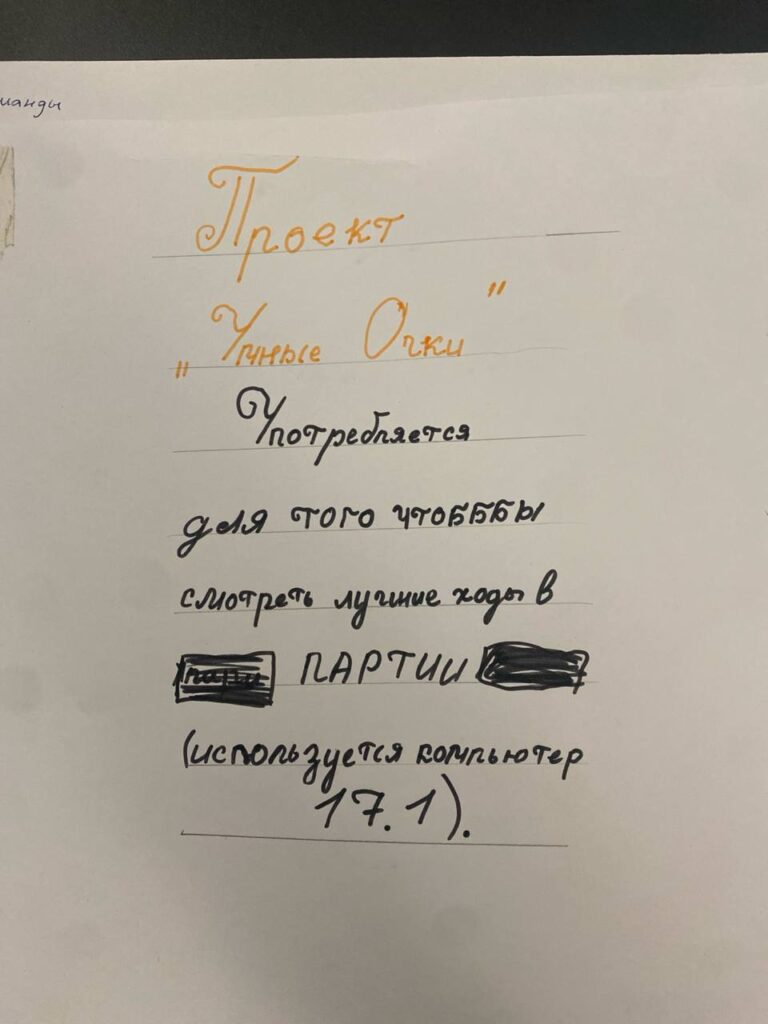 манды
Проект
„Умные Очки"
Употребляется
для того чтобббы
смотреть лучшие ходы в
ПАРТИИ
(используется компьютер
17.1).